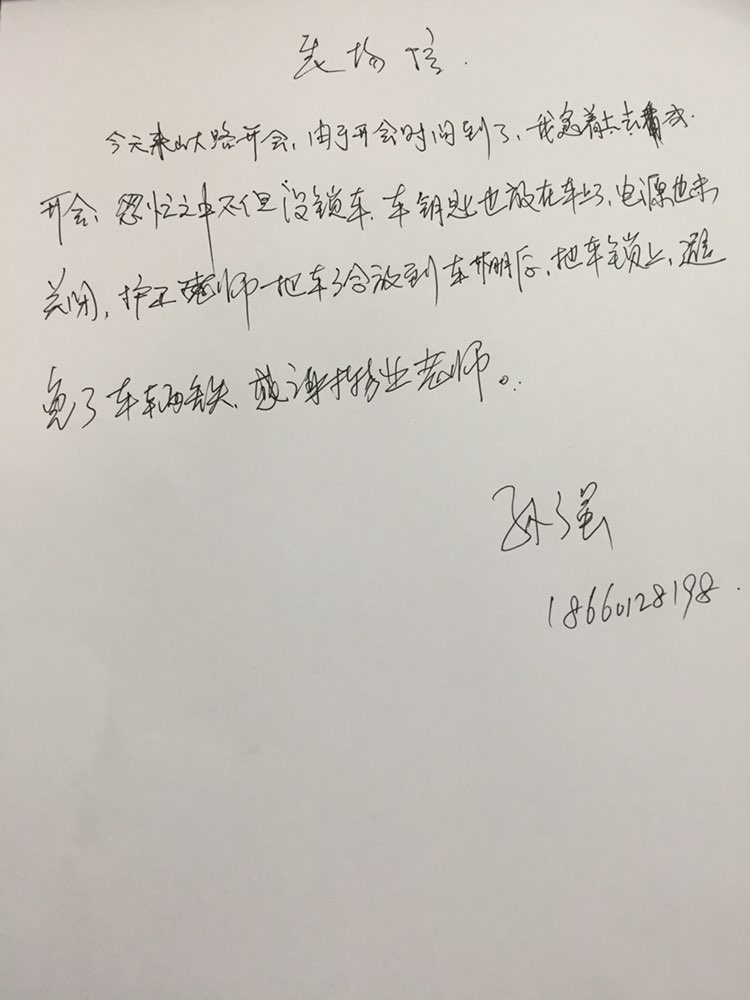 表扬信.
今天来山大路开会,由于开会时间到了,我急着去
开会,忽忙之中不但没锁车,车钥匙也放在车上了,电源也未
关闭,老师把车给放到车棚后,把车锁上,避
免了车辆丢失,感谢物业老师。
孙强
18660128198.